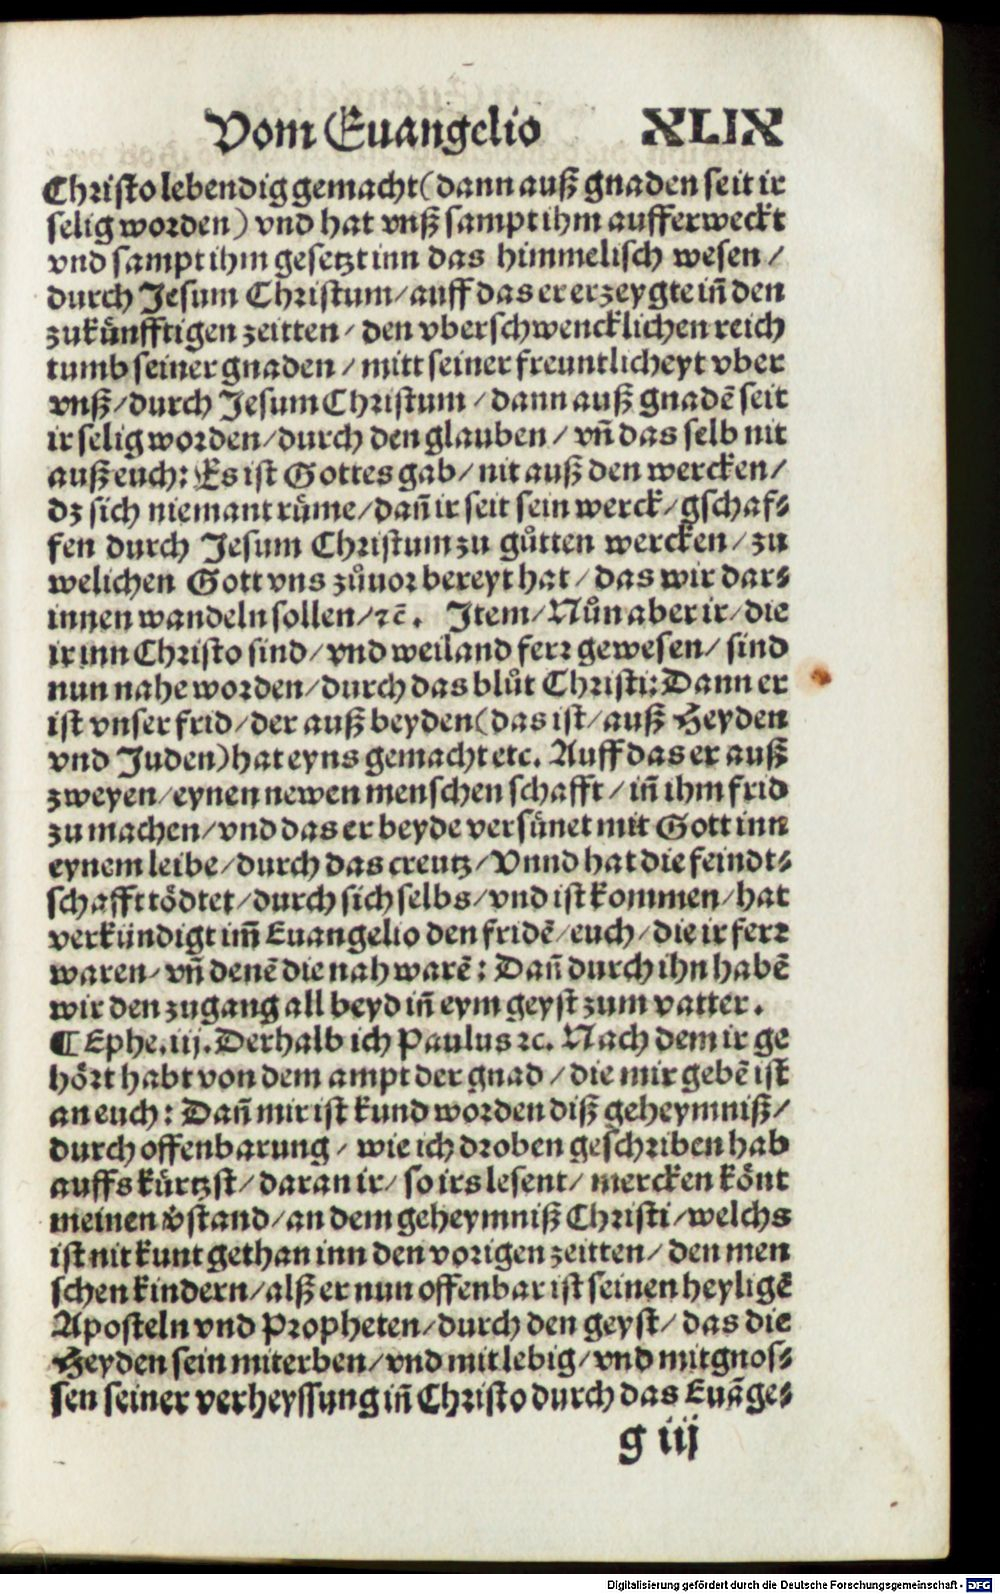 Vom Euangelio XLIX
Christo lebendig gemacht (dann auß gnaden seit ir
selig worden) vnd hat vnß sampt ihm aufferweckt
vnd sampt ihm gesetzt inn das himmelisch wesen /
durch Jesum Christum / auff das er erzeygte iñ den
zukünfftigen zeitten / den vberschwencklichen reich
tumb seiner gnaden / mitt seiner freuntlicheyt vber
vnß / durch Jesum Christum / dann auß gnadē seit
ir selig worden / durch den glauben / vñ das selb nit
auß euch: Es ist Gottes gab / nit auß den wercken /
dz sich niemant rüme / dañ ir seit sein werck / gschaf⸗
fen durch Jesum Christum zu gůtten wercken / zu
welichen Gott vns zůuor bereyt hat / das wir dar⸗
innen wandeln sollen / ꝛcē. Item / Nůn aber ir / die
ir inn Christo sind / vnd weiland ferr gewesen / sind
nun nahe worden / durch das blůt Christi: Dann er
ist vnser frid / der auß beyden (das ist / auß Heyden
vnd Juden) hat eyns gemacht etc. Auff das er auß
zweyen / eynen newen menschen schafft / iñ ihm frid
zu machen / vnd das er beyde versünet mit Gott inn
eynem leibe / durch das creutz / Vnnd hat die feindt⸗
schafft tödtet / durch sich selbs / vnd ist kommen / hat
verkündigt im̃ Euangelio den fridē / euch / die ir ferr
waren / vñ denē die nah warē: Dañ durch ihn habē
wir den zugang all beyd iñ eym geyst zum vatter.
¶ Ephe. iij. Derhalb ich Paulus ꝛc. Nach dem ir ge
hört habt von dem ampt der gnad / die mir gebē ist
an euch: Dañ mir ist kund worden diß geheymniß /
durch offenbarung / wie ich droben geschriben hab
auffs kürtzst / daran ir / so irs lesent / mercken könt
meinen v̈stand / an dem geheymniß Christi / welchs
ist nit kunt gethan inn den vorigen zeitten / den men
schen kindern / alß er nun offenbar ist seinen heyligē
Aposteln vnd Propheten / durch den geyst / das die
Heyden sein miterben / vnd mitlebig / vnd mitgnos⸗
sen seiner verheyssung iñ Christo durch das Euāge⸗
g iij
Digitalisierung gefördert durch die Deutsche Forschungsgemeinschaft - DFG